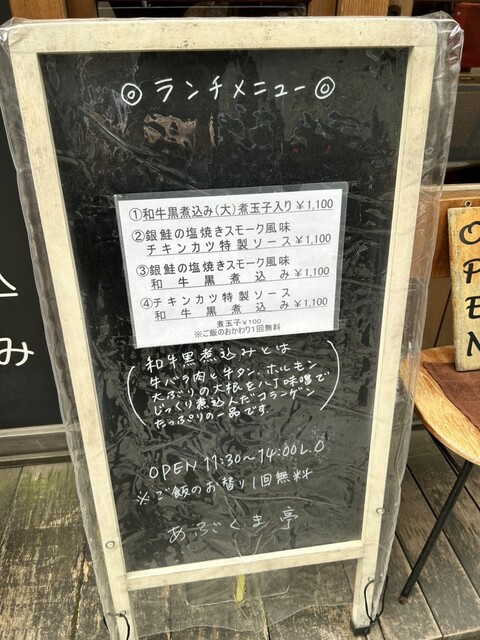 ◎ランチメニュー◎
①和牛黒煮込み(大)煮玉子入り¥1,100
②銀鮭の塩焼きスモーク風味
チキンカツ特製ソース¥1,100
③銀鮭の塩焼きスモーク風味
和牛黒煮込み¥1,100
④チキンカツ特製ソース
和牛黒煮込み¥1,100
煮玉子¥100
※ご飯のおかわり1回無料
和牛黒煮込みとは
牛バラ肉と牛タン、ホルモン
大ぶりの大根を八丁味噌で
じっくり煮込んだコラーゲン
たっぷりの一品です。
OPEN 11:30~14:00 L.O
※ご飯のお替り1回無料
あぶくま亭
み
OPEN